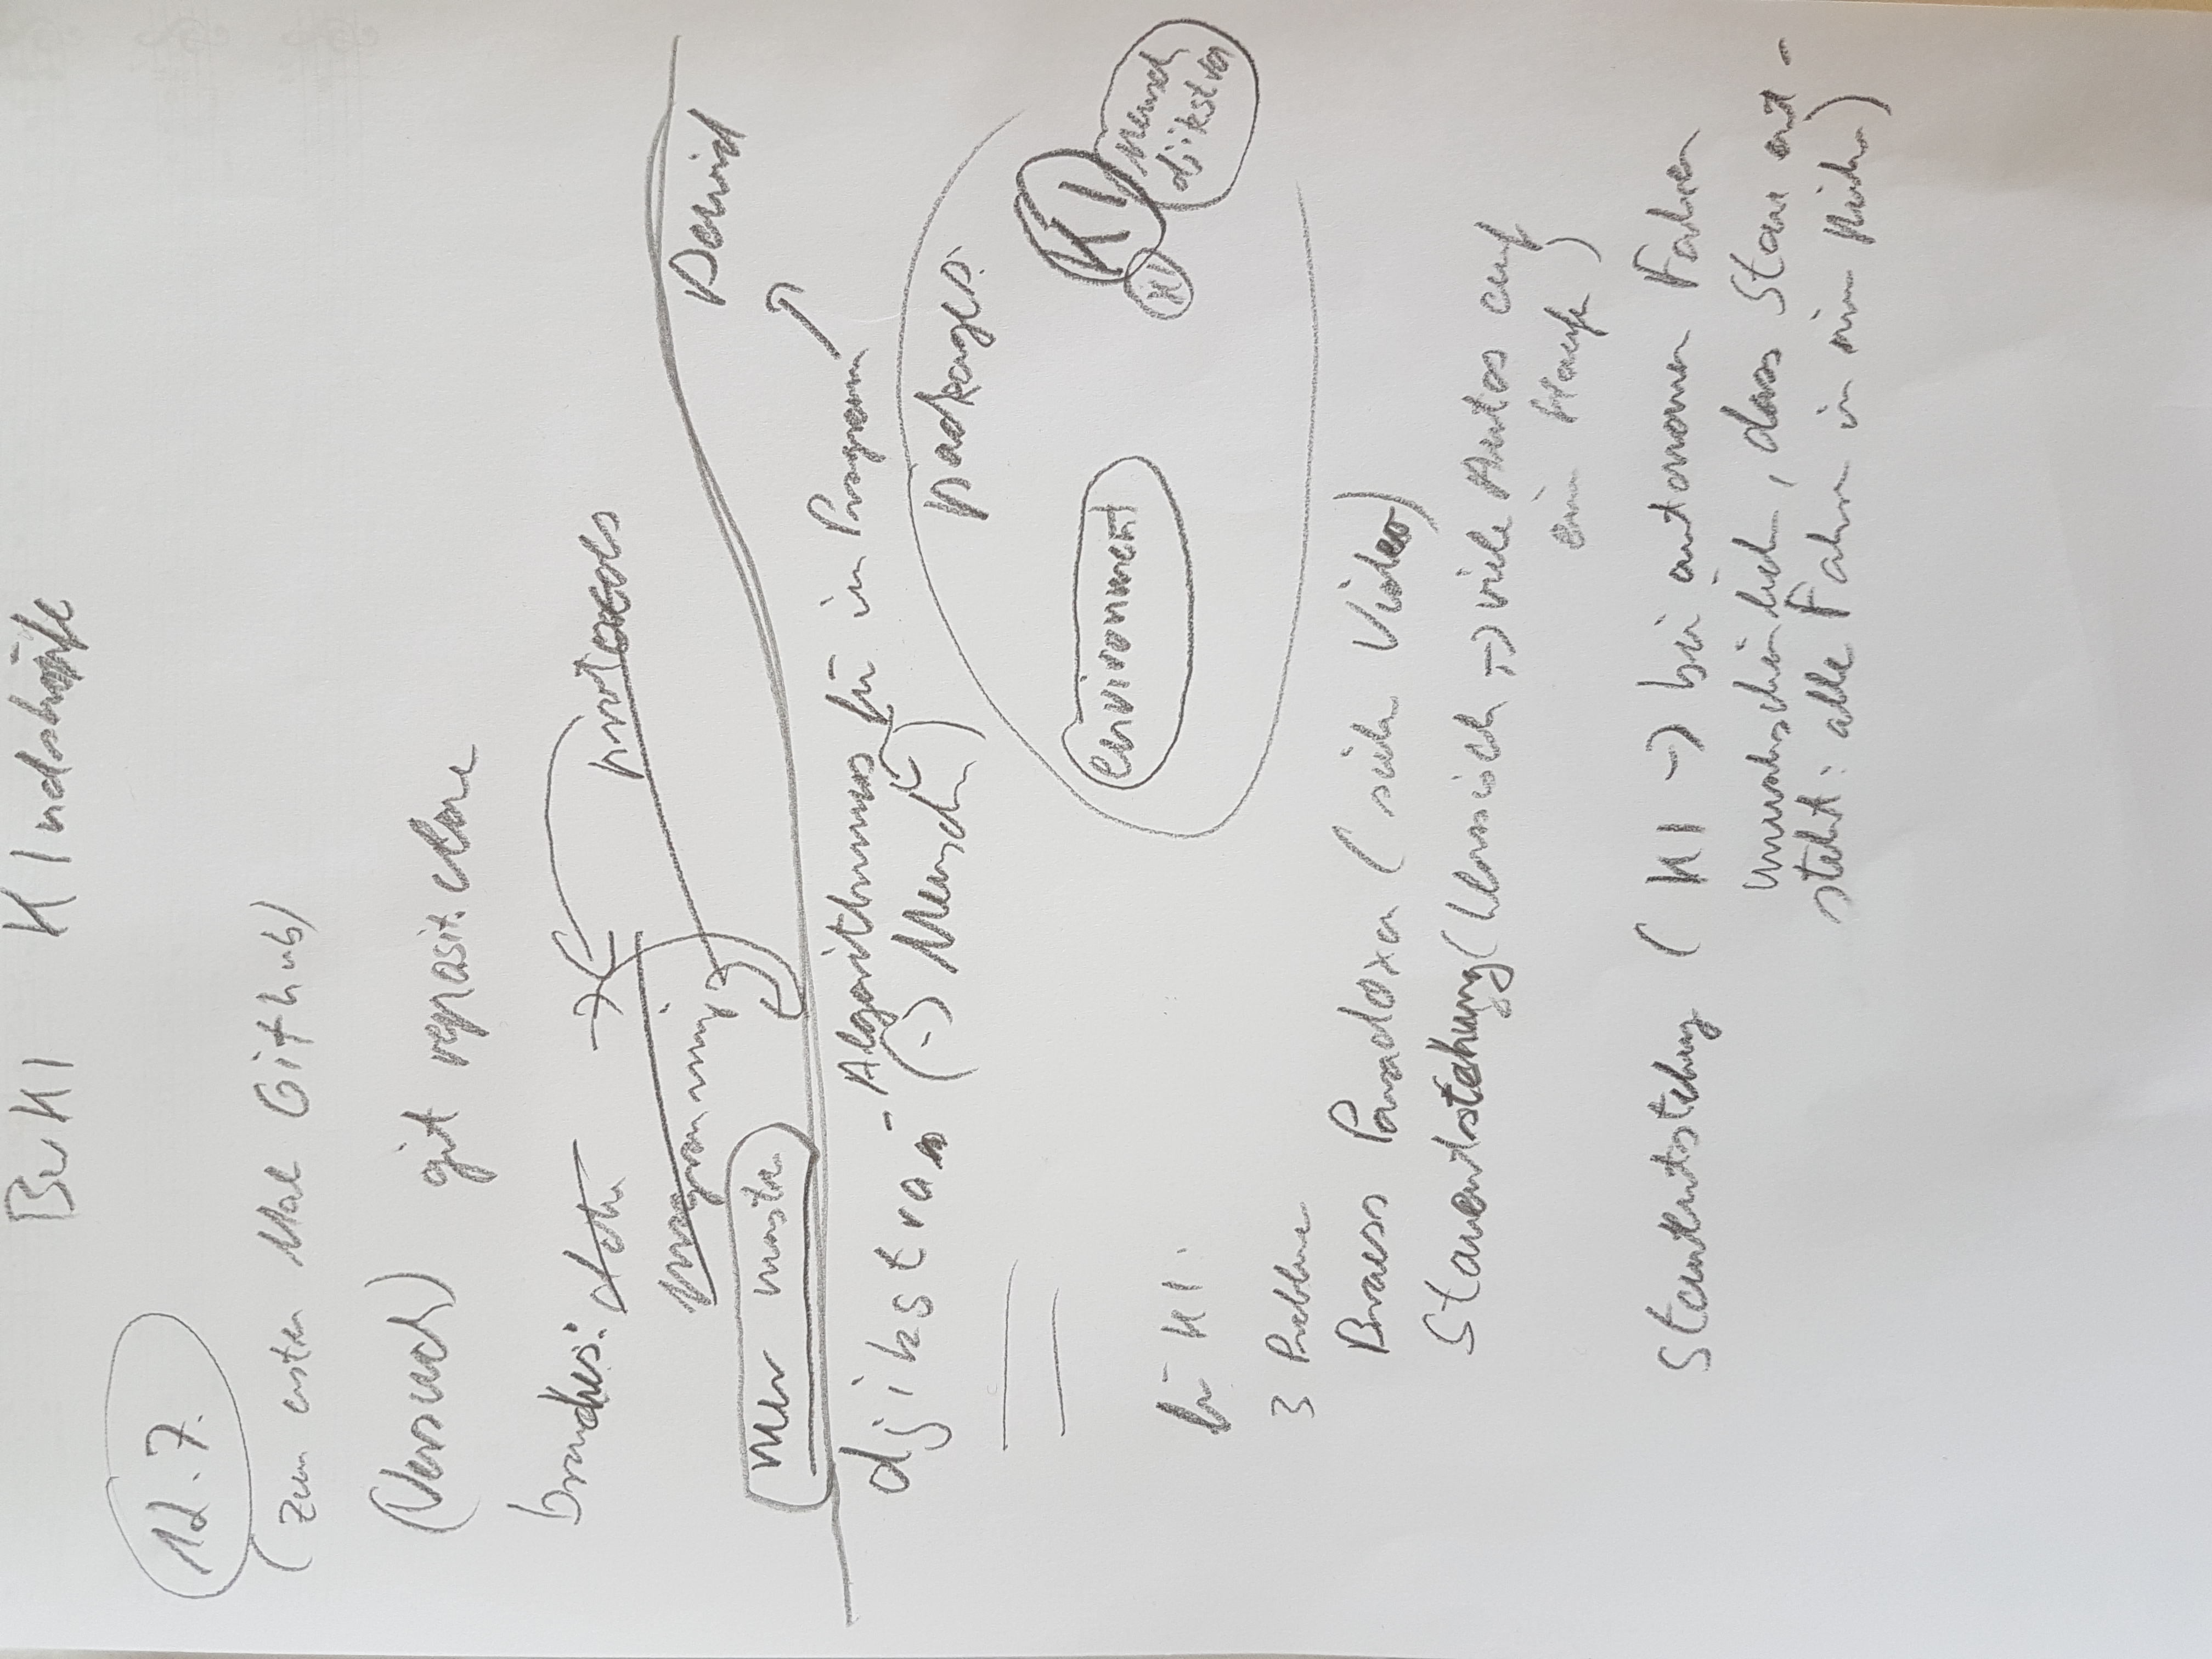 BuKI KIndsköpfe
12.7.
(zum ersten Mal Github)
(Versuch) git reposit. clone
branches: data protocols
programming
nur master
David
djikstra - Algorithmus für im Programm
(-> Mensch)
packages:
environment KI
KI Mensch
djikstra
für KI.
3 Probleme
Braess Paradoxa (siehe Video)
Stauentstehung (klassisch -> viele Autos auf
ein Haufen)
Stauentstehung (KI -> bei autonomen Fahren
unwahrscheinlich, dass Stau ent-
steht: alle Fahren in eine